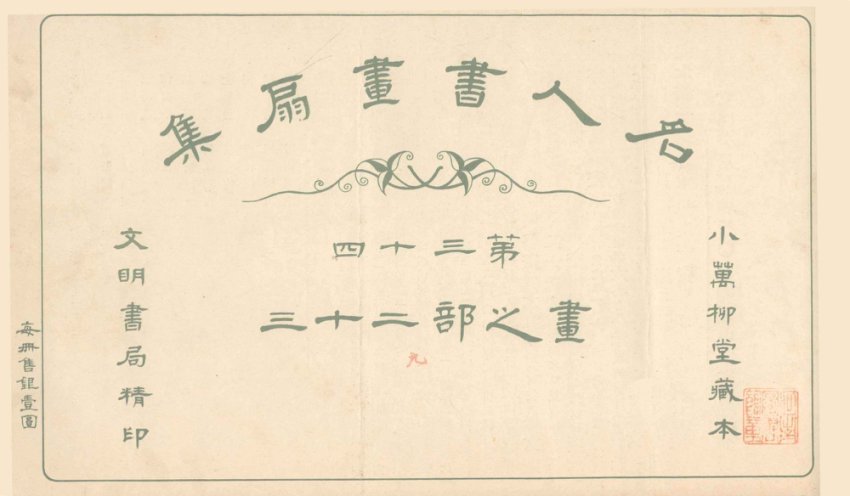 名人書畫扇集
小萬柳堂藏本
第三十四
畫之部二十三
文明書局精印
每冊售銀壹圓